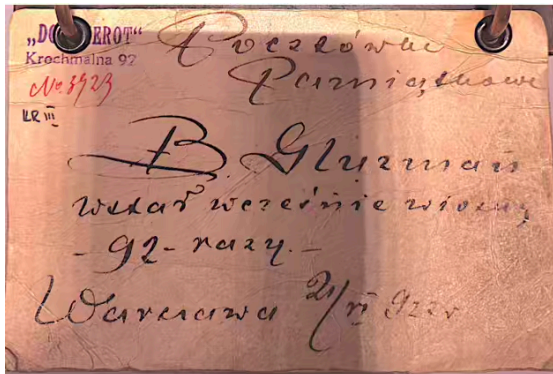 „DO EROT“
Krochmalna 92
№ 3923
KR III
Pocztówka
Pamiątkowa
B. Gluzman
wstał wcześnie wiosną
- 92 - razy. -
Warszawa 21/VI 922 r